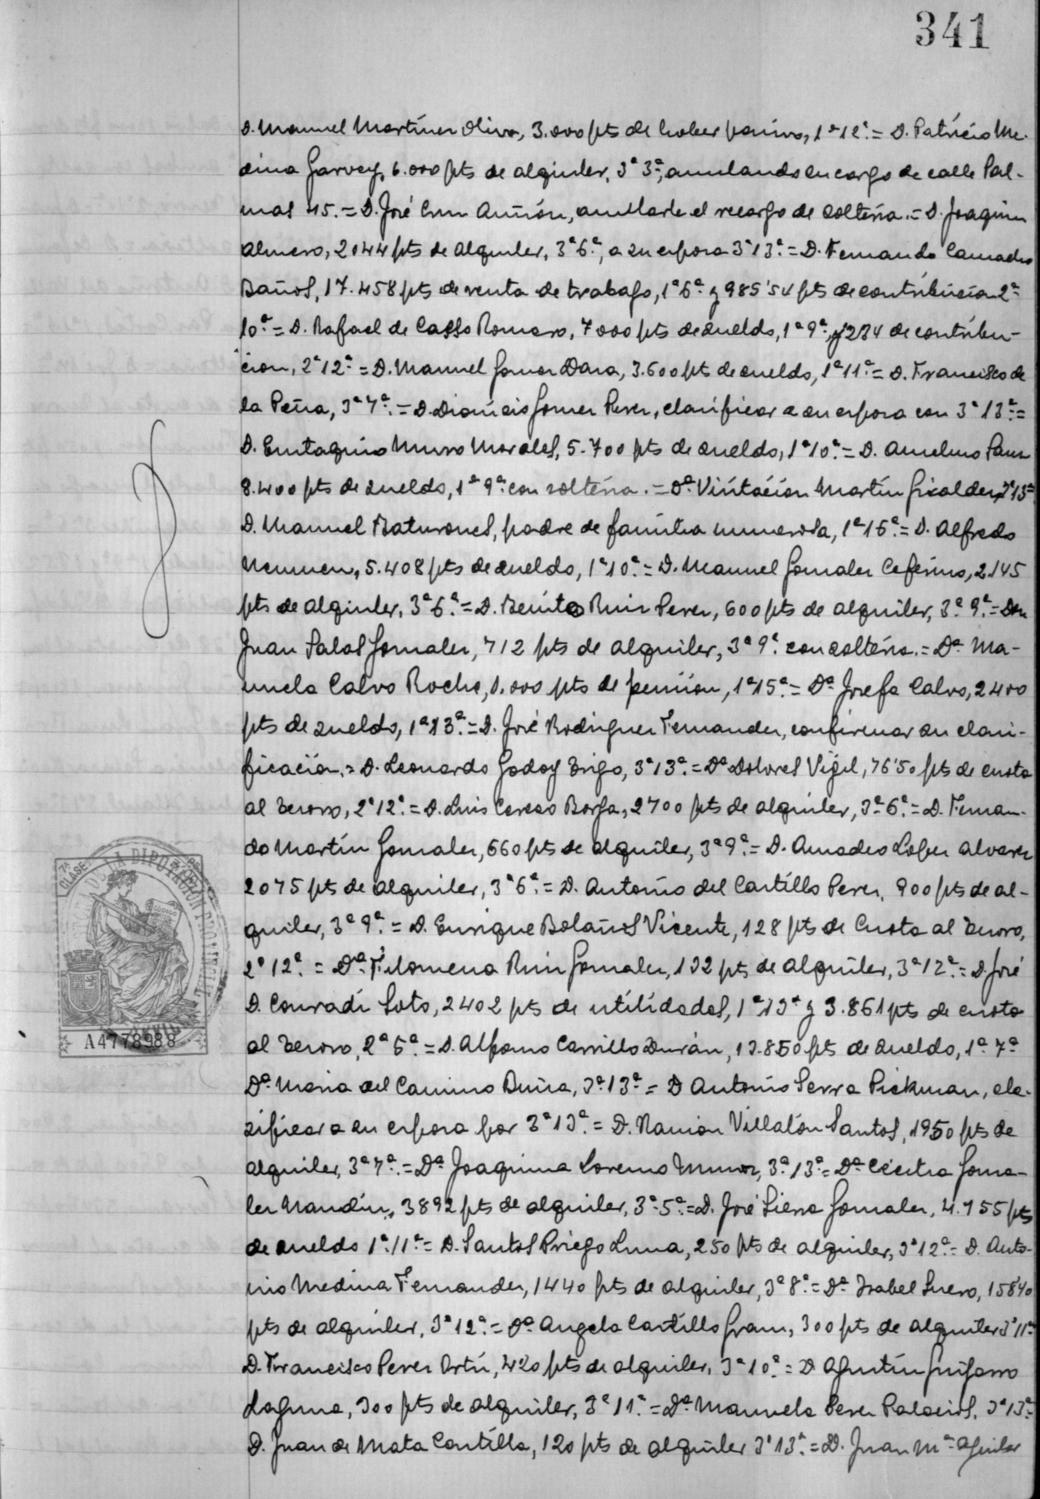 341
D. Manuel Martínez Oliva, 3.000 pts de haber pasivo, 1ª 12ª = D. Patricio Me-
dina Garvey, 6.000 pts de alquiler, 3ª 3ª, anulando su cargo de calle Pal-
mas 45. = D. José Cruz Auñón, anularle el recargo de soltería. = D. Joaquín
Almero, 2044 pts de alquiler, 3ª 6ª, a su esposa 3ª 13ª = D. Fernando Camacho
Baños, 17.458 pts de renta de trabajo, 1ª 6ª y 985'54 pts de contribución 2ª
10ª = D. Rafael de Casso Romero, 7000 pts de sueldo, 1ª 9ª, y 284 de contribu-
ción, 2ª 12ª = D. Manuel Gomez Dara, 3.600 pts de sueldo, 1ª 11ª = D. Francisco de
la Peña, 3ª 7ª. = D. Dionisio Gomez Perez, clasificar a su esposa con 3ª 13ª =
D. Eustaquio Muro Morales, 5.700 pts de sueldo, 1ª 10ª = D. Anselmo
8.400 pts de sueldo, 1ª 9ª con soltería. = Dª Visitación Martín Gicalde, 3ª 13ª
D. Manuel Baturones, padre de familia numerosa, 1ª 16ª = D. Alfredo
5.408 pts de sueldo, 1ª 10ª = D. Manuel Gonzalez Ceferino, 2145
pts de alquiler, 3ª 6ª = D. Benito Ruiz Perez, 600 pts de alquiler, 3ª 9ª = Don
Juan Salas Gonzalez, 712 pts de alquiler, 3ª 9ª con soltería. = Dª Ma-
nuela Calvo Roche, 1.000 pts de pensión, 1ª 15ª = Dª Josefa Calvo, 2400
pts de sueldo, 1ª 13ª = D. José Rodriguez Fernandez, confirmar su clasi-
ficación. = D. Leonardo Godoy Erigo, 3ª 13ª = Dª Dolores Vigil, 76'50 pts de cuota
al Tesoro, 2ª 12ª = D. Luis Cereso Borja, 2700 pts de alquiler, 3ª 6ª = D. Fernan-
do Martín Gonzalez, 660 pts de alquiler, 3ª 9ª = D. Amadeo Lopez Alvarez
2075 pts de alquiler, 3ª 6ª = D. Antonio del Castillo Perez, 900 pts de al-
quiler, 3ª 9ª = D. Enrique Bolaños Vicente, 128 pts de Cuota al Tesoro,
2ª 12ª = Dª Filomena Ruiz Gonzalez, 132 pts de alquiler, 3ª 12ª = D José
D. Conradi Soto, 2402 pts de utilidades, 1ª 13ª y 3.861 pts de cuota
al Tesoro, 2ª 5ª = D. Alfonso Carrillo Durán, 13.850 pts de sueldo, 1ª 7ª
Dª Maria del Camino Buiza, 3ª 13ª = D Antonio Serra Pickman, cla-
sificar a su esposa por 3ª 13ª = D. Ramon Villalón Santos, 1950 pts de
alquiler, 3ª 7ª = Dª Joaquina Lorenzo Munoz, 3ª 13ª = Dª Cecilia Gonza-
lez Nandín, 3892 pts de alquiler, 3ª 5ª = D. José Sierra Gonzalez, 4.755 pts
de sueldo 1ª 11ª = D. Santos Priego Luna, 250 pts de alquiler, 3ª 12ª = D. Anto-
nio Medina Fernandez, 1440 pts de alquiler, 3ª 8ª = Dª Isabel Suero, 158'40
pts de alquiler, 3ª 12ª = Dª Angela Castillo Grau, 300 pts de alquiler 3ª 11ª
D. Francisco Perez Ortiz, 420 pts de alquiler, 3ª 10ª = D Agustín Guijarro
Laguna, 300 pts de alquiler, 3ª 11ª = Dª Manuela Perez Palacios, 3ª 13ª
D. Juan de Mata Cantilla, 120 pts de alquiler 3ª 13ª = D. Juan Mª Aguilar
7ª CLASE
LA DIPUTACION PROVINCIAL
SEVILLA
A4778988